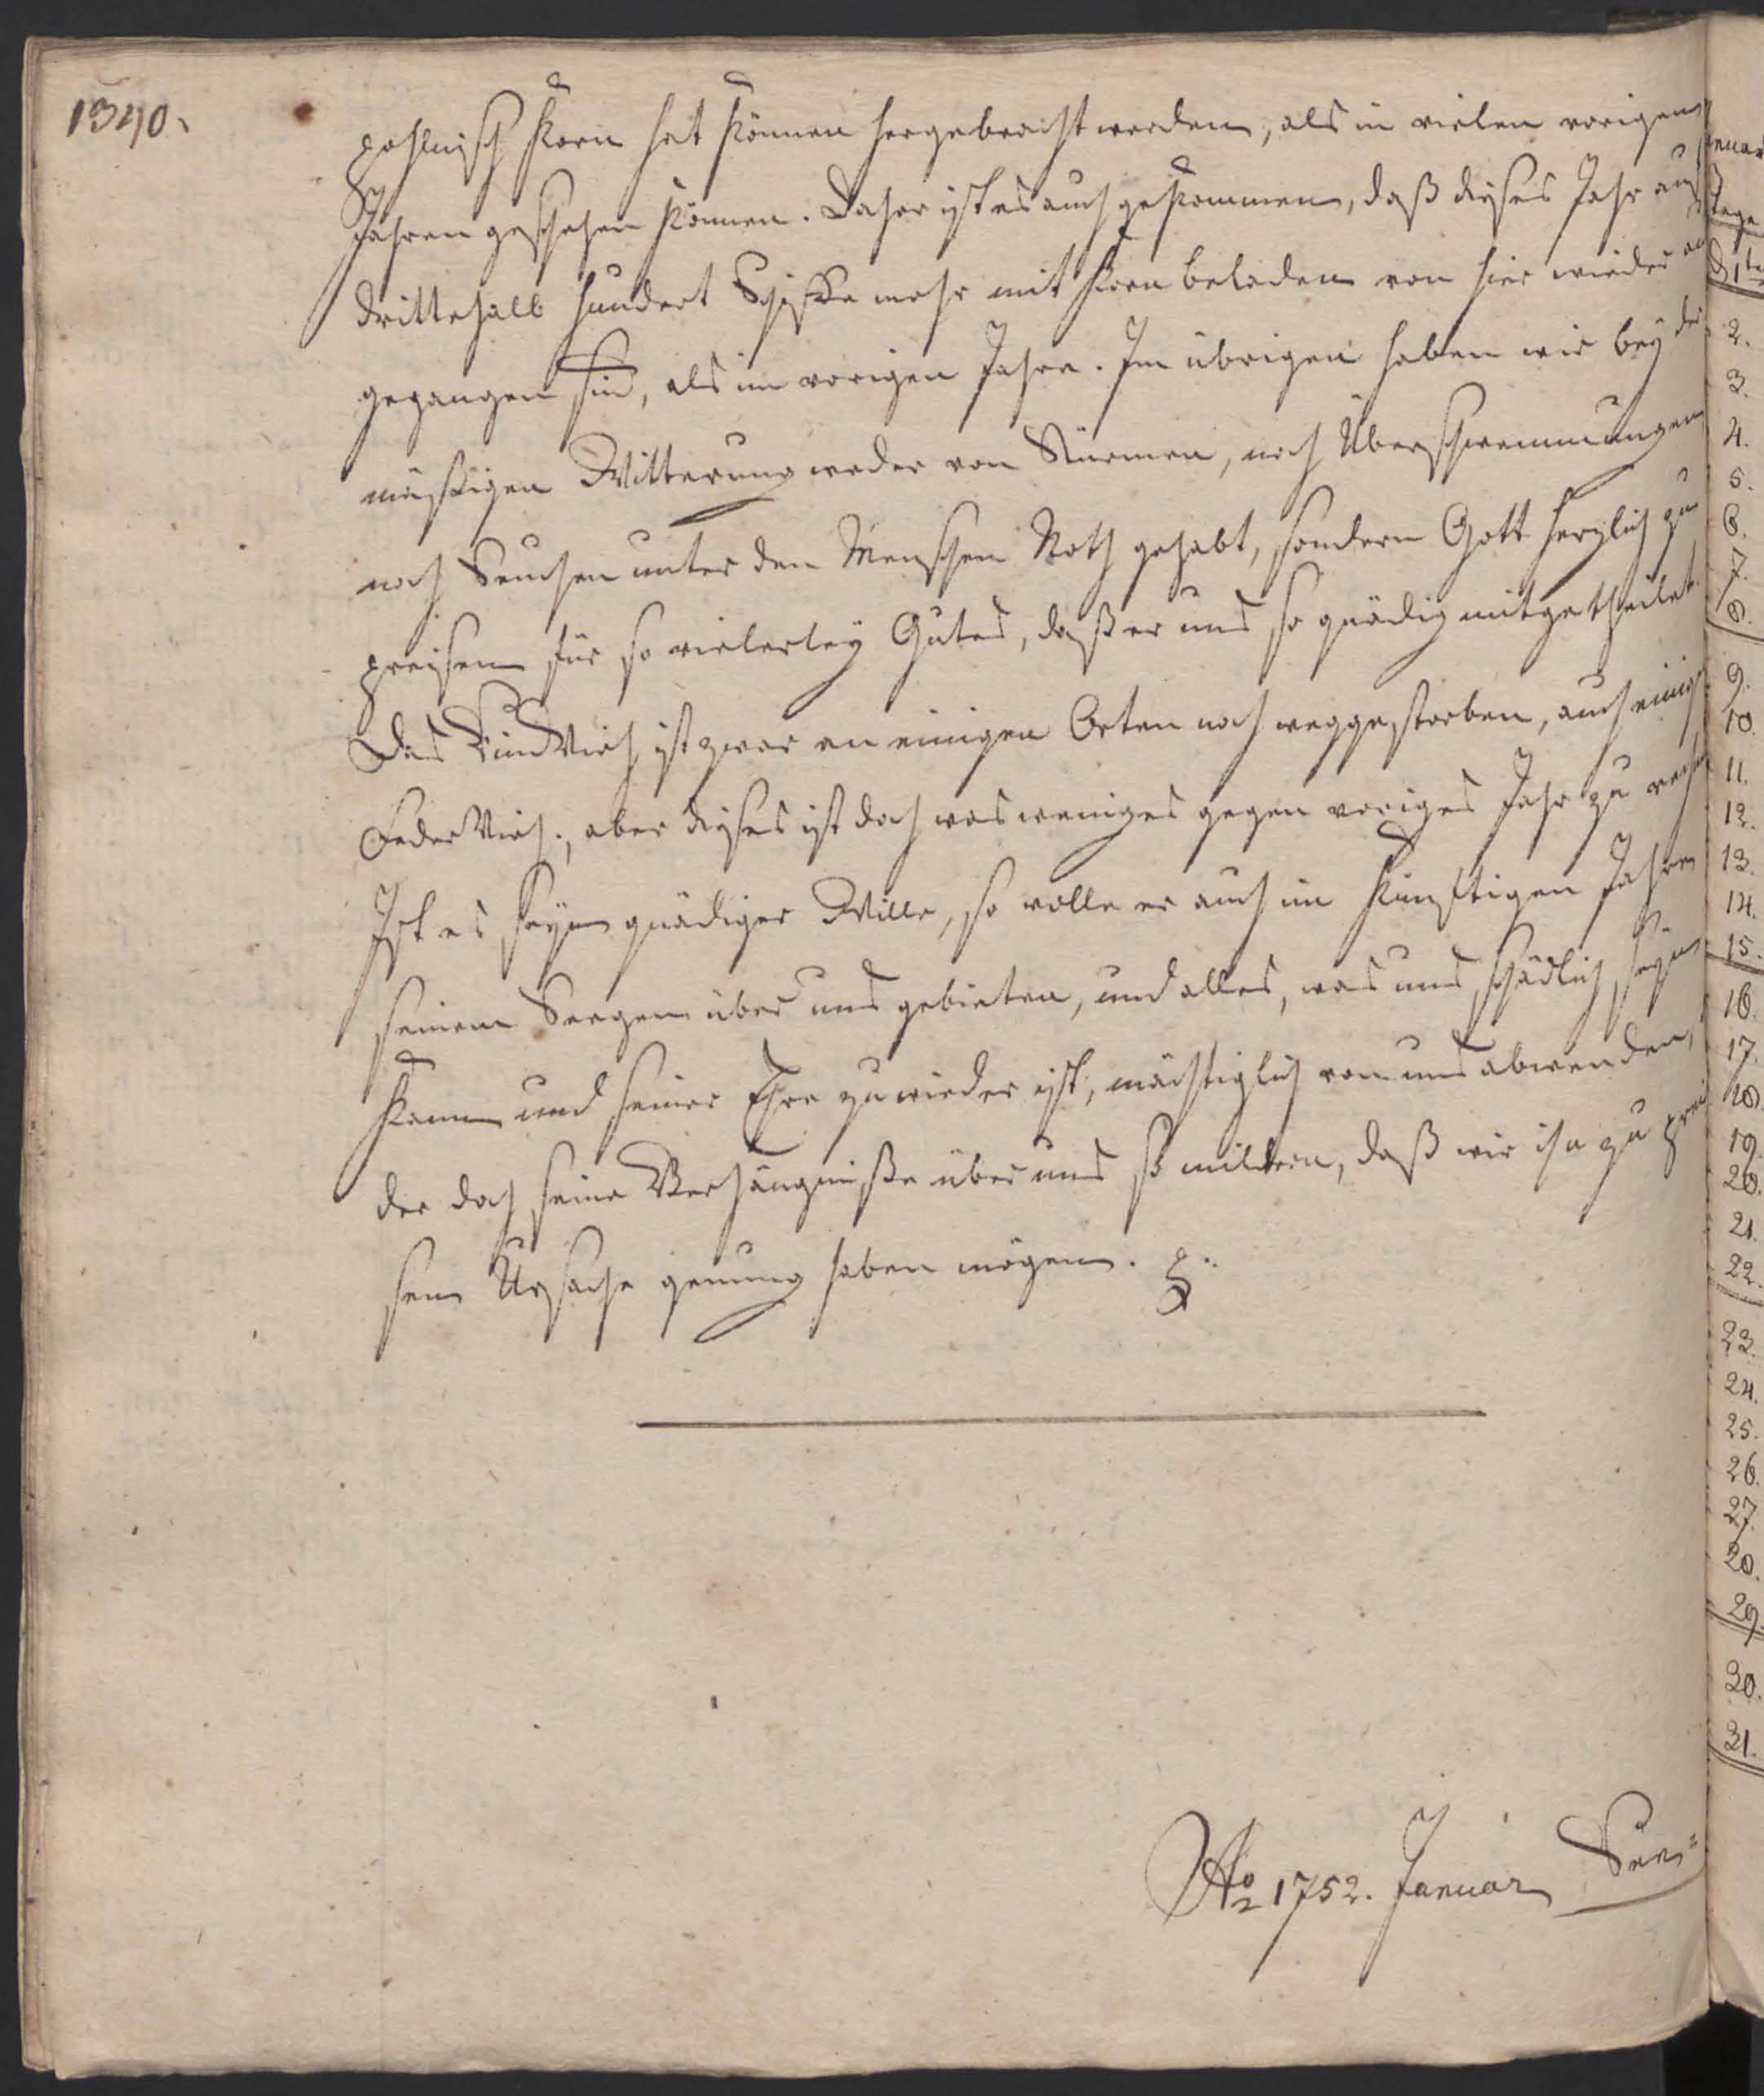 1340.
pohlnisch Korn hat können hergebracht werden, als in vielen vorigen
Jahren geschehen können. Daher ist es auch gekommen, daß dieses Jahr auf
drittehalb hundert Schiffe mehr mit Korn beladen von hier wieder
gegangen sind, als im vorigen Jahre. Im übrigen haben wir bey der
mäßigen Witterung weder von Stürmen, noch Überschwemmungen
noch Seuchen unter den Menschen Noth gehabt, sondern Gott herzlich zu
preisen für so vielerley Gutes, daß er uns so gnädig mitgetheilet.
Das Rind Vieh ist zwar an einigen Orten noch weggestorben, auch einig
Feder Vieh; aber dieses ist doch was weniges gegen voriges Jahr zu rechn
Ist es seyn gnädiger Wille, so wolle er auch im künftigen Jahren
seinem Seegen über uns gebieten, und alles, was uns schädlich seyn
kann und seiner Ehre zuwieder ist, mächtiglich von uns abwenden,
der doch seine Verhängniße über uns so mildern, daß wir ihn zu prei
sen Ursache genung haben mögen.
Ao 1752. Januar
2.
3.
4.
5.
6.
7.
8.
9.
10.
11.
12.
13.
14.
15.
16.
17.
18.
19.
20.
21.
22.
23.
24.
25.
26.
27.
28.
29.
30.
31.